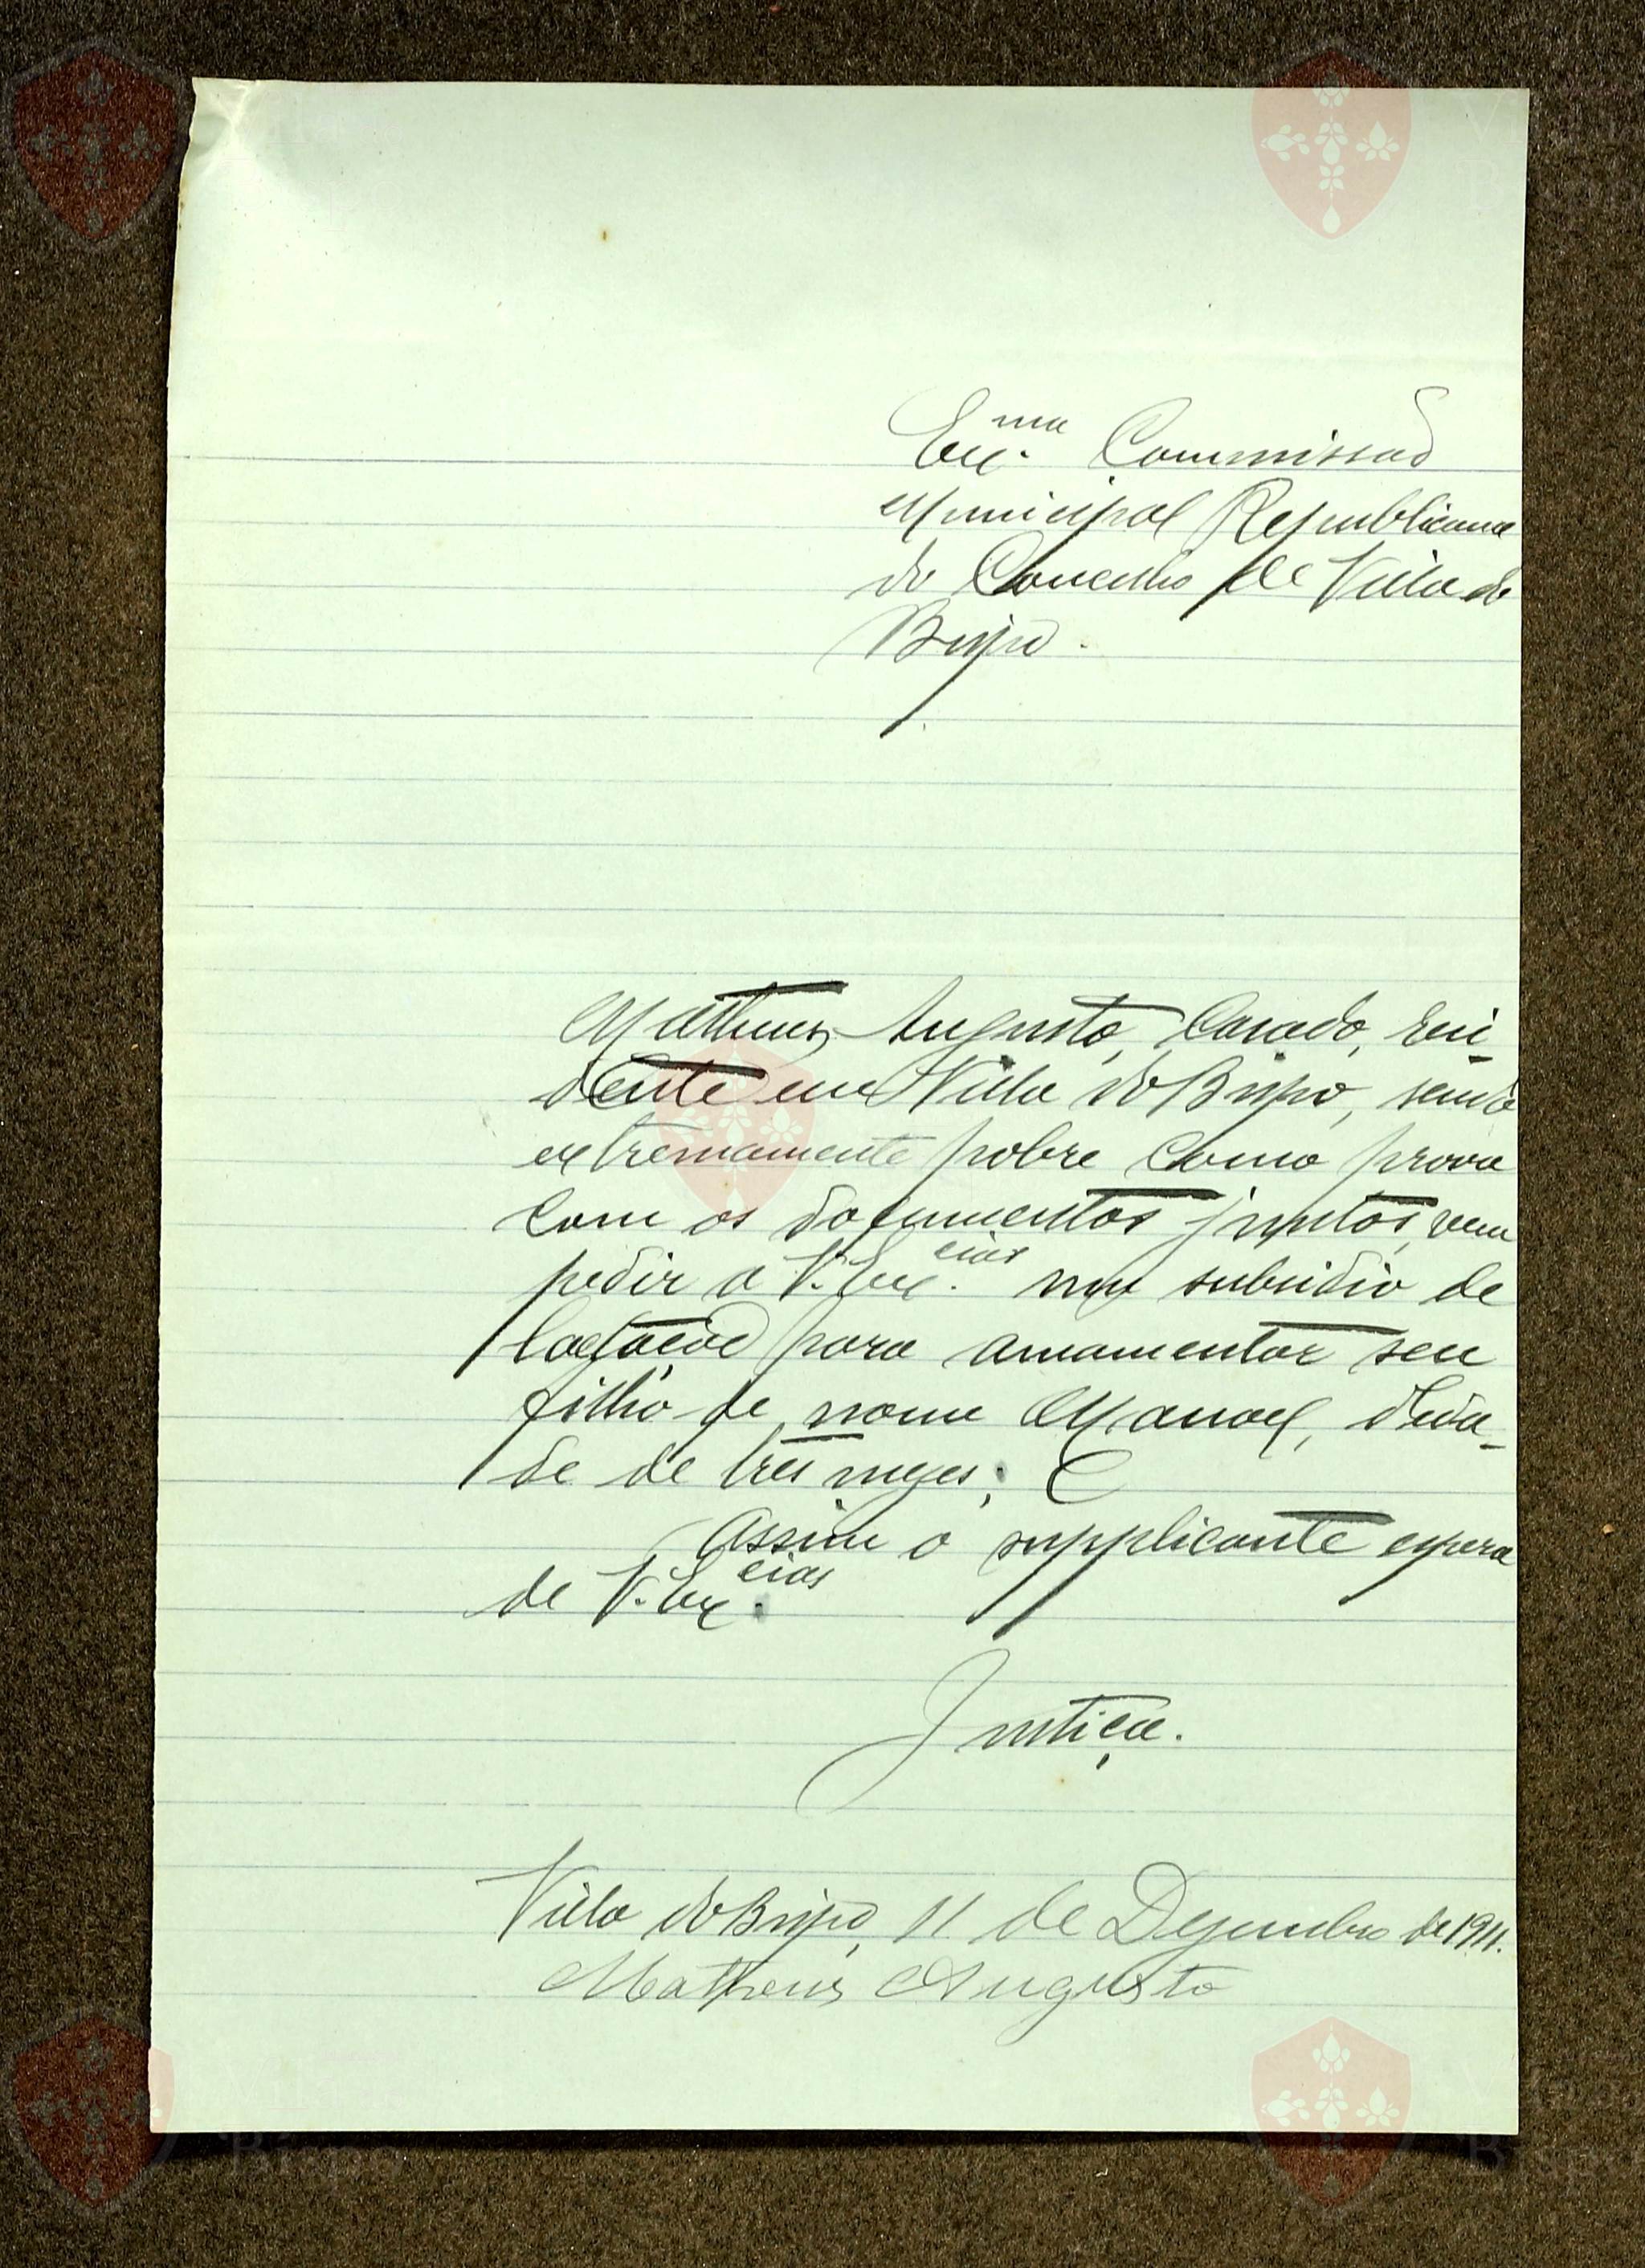 Ex.ma Commissaõ
Municipal Republicana
do Concelho de Villa do
Bispo.
Matheus Augusto, Casado, resi-
dente em Villa do Bispo, sendo
extremamente pobre como prova
com os documentos juntos, vem
pedir a V. Ex.cias um subsidio de
lactação para amamentar seu
filho de nome Manoel, d'ida-
de de tres mezes; E
Assim o supplicante espera
de V. Ex.cias
Justiça.
Villa do Bispo, 11 de Dezembro de 1911.
Matheus Augusto